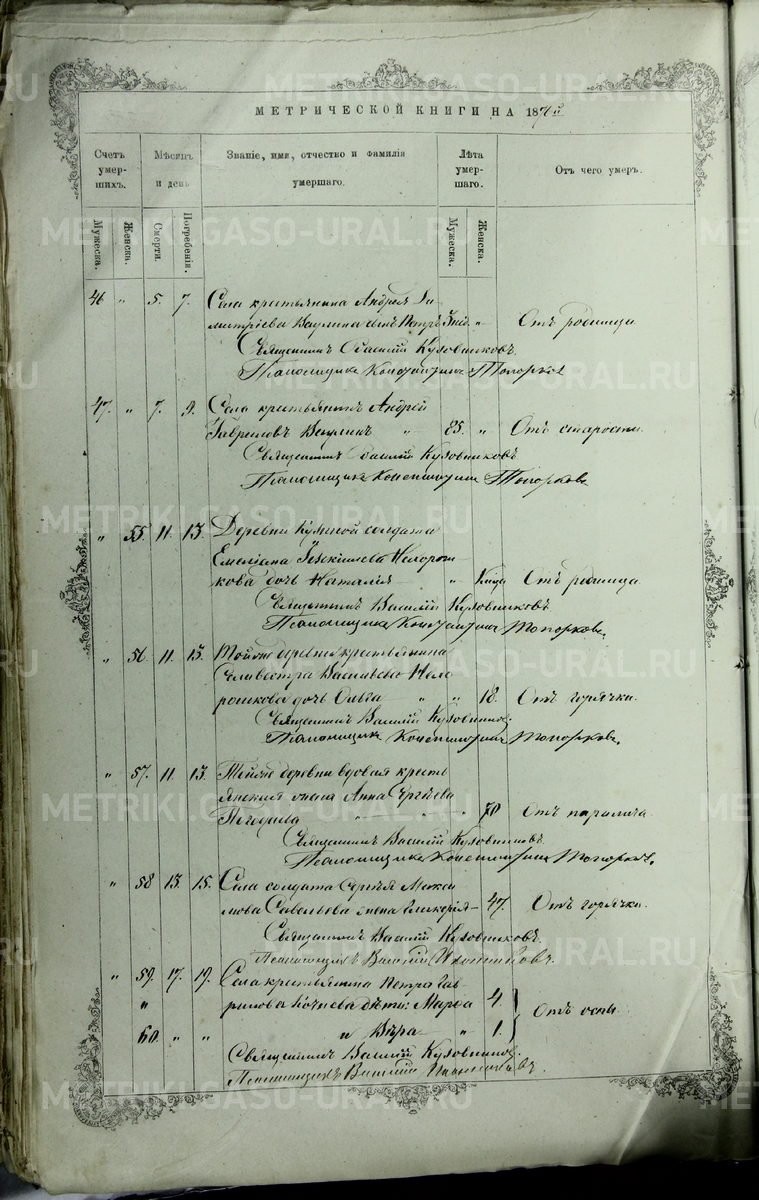 МЕТРИЧЕСКОЙ КНИГИ НА 187
Счетъ умер-шихъ. Мѣсяцъ и день Званіе, имя, отчество и фамилія умершаго. Лѣта умер-шаго. Отъ чего умеръ.
Мужеска. Женска. Смерти. Погребенія. Мужеска. Женска.
46 " 5. 7. Села крестьянина Андрея Ди-
митріева Ваулина сынъ Петръ " Отъ родимца
Священникъ Василій Кузовниковъ.
Псаломщикъ Константинъ Топорковъ
47. " 7. 9. Села крестьянинъ Андрей
Гавриловъ Ваулинъ " 85. " Отъ старости.
Священникъ Василій Кузовниковъ
Псаломщикъ Константинъ Топорковъ
" 55 11. 13. Деревни солдата
Емеліана
кова дочь Наталія " Отъ родимца
Священникъ Василій Кузовниковъ
Псаломщикъ Константинъ Топорковъ.
" 56 11. 13. Тойже деревни крестьянина
Селивестра Васильева Нехо
рошкова дочь Ольга " " 18. Отъ горячки.
Священникъ Василій Кузовниковъ
Псаломщикъ Константинъ Топорковъ.
" 57. 11. 13. Тойже деревни вдовая кресть
янская жена Анна Сергѣева
" " " 70 Отъ паралича.
Священникъ Василій Кузовниковъ
Псаломщикъ Константинъ Топорковъ.
" 58 13. 15. Села солдата Сергѣя Макси
мова Савельева жена Гликерія 47. Отъ горячки.
Священникъ Василій Кузовниковъ.
Псаломщикъ Василій
" 59. 17. 19. Села крестьянина Петра Гав-
рилова дѣти: Марѳа 4. Отъ оспы.
" 60. " " и Вѣра " 1.
Священникъ Василій Кузовниковъ
Псаломщикъ Василій
METRIKI.GASO-URAL.RU